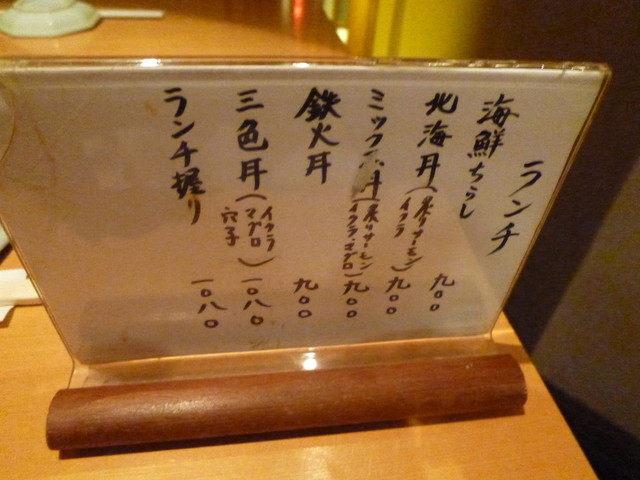 ランチ
海鮮ちらし 九〇〇
北海丼(炙りサーモン イクラ) 九〇〇
ミックス丼(炙りサーモン イクラ・マグロ) 九〇〇
鉄火丼 九〇〇
三色丼(イクラ マグロ 穴子) 一〇八〇
ランチ握り 一〇八〇